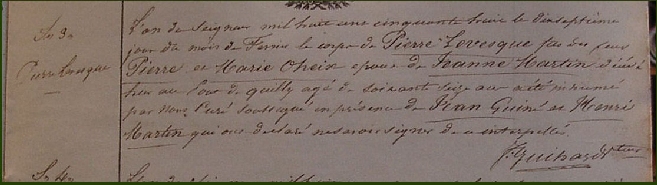 N 3e
Pierre Levesque
L'an du Seigneur mil huit cent cinquante trois le dixseptième
jour du mois de le corps de Pierre Levesque fils de feus
Pierre et Marie Oheix epoux de Jeanne Martin décédé
hier au Port de quilly agé de soixante seize ans a été inhumé
par Nous Curé soussigné en présence de Jean Guiné et Henri
Martin qui ont déclaré ne savoir signer de ce interpellés.
J. Guihard